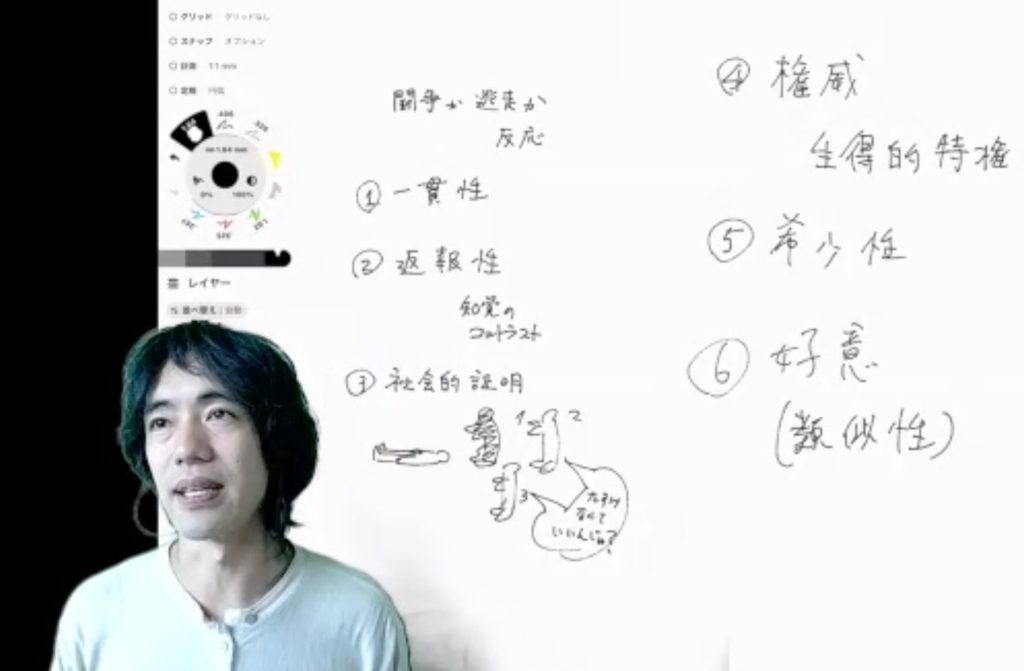 グリッド グリッドなし
スナップ オプション
計測 1:1 mm
定規 円弧
0% 100%
レイヤー
並べ替え | 自動
闘争か逃走か
反応
① 一貫性
② 返報性
知覚の
コントラスト
③ 社会的証明
1 2
3
たすけ
なくて
いいんじゃ?
④ 権威
生得的特権
⑤ 希少性
⑥ 好意
(類似性)